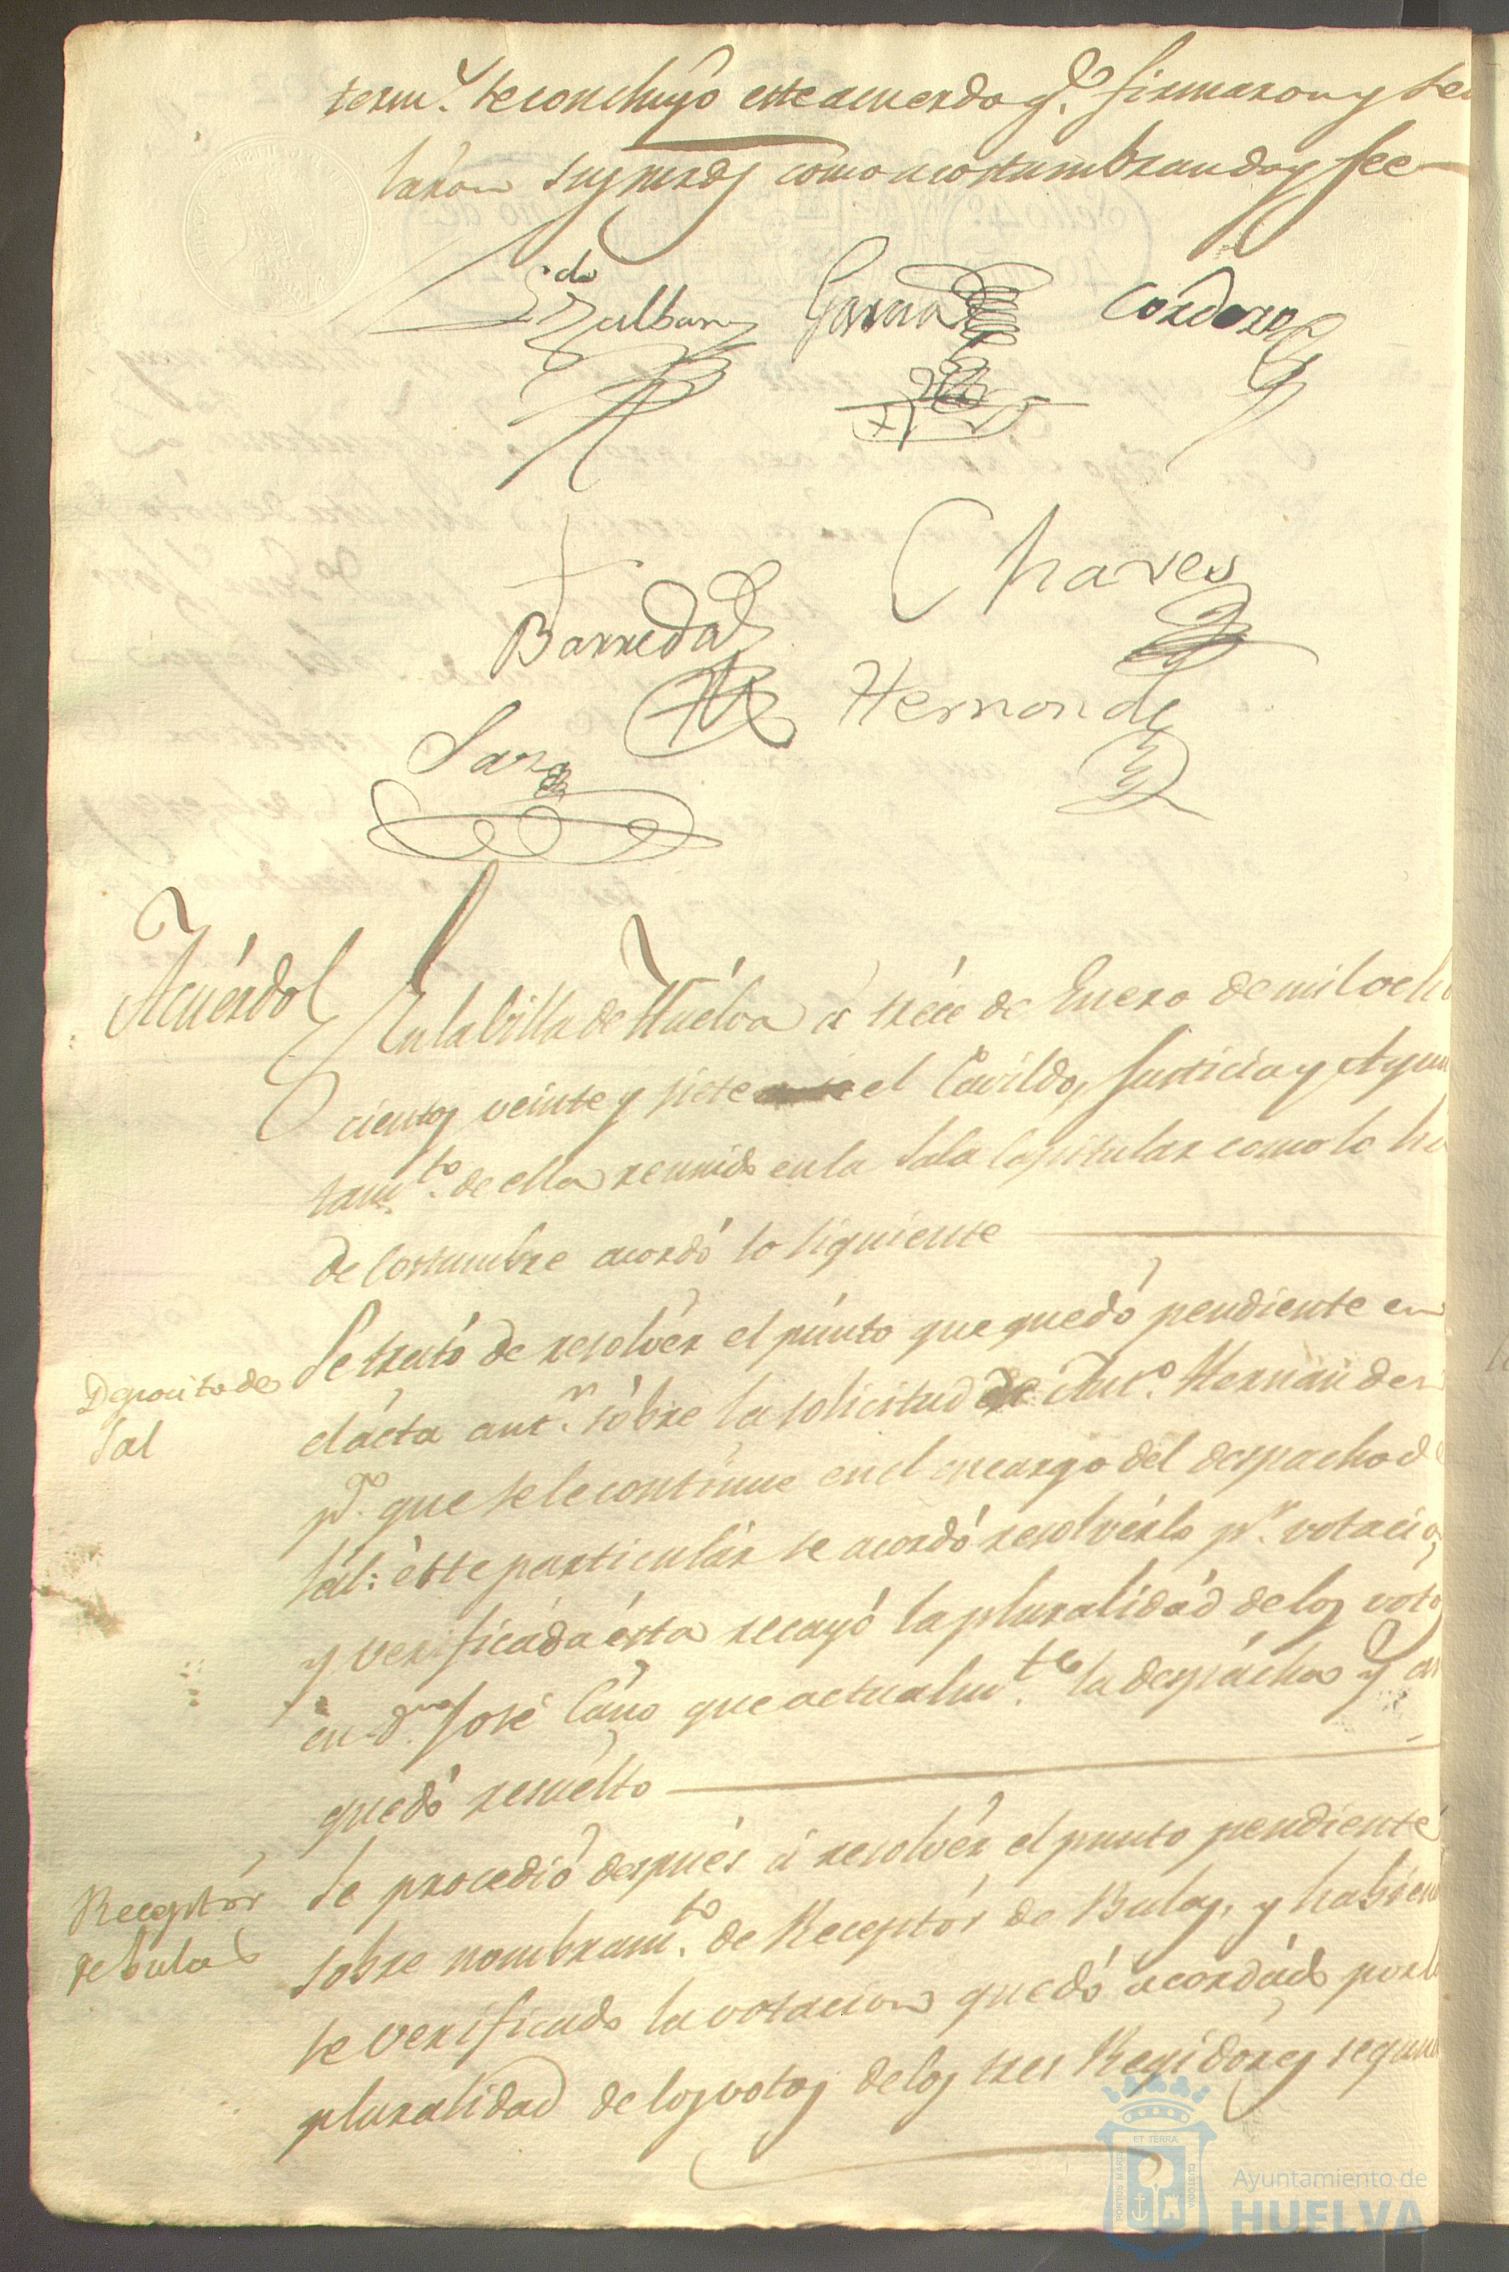 term.º se concluyo este acuerdo q.e firmaron y se
laron sus mrds como acostumbran doy fee
L.do Balbuen
Garcia
Cordero
Chaves
Barreda
Hernandz
Sanz
Acuérdo
En la billa de Huélva á tréce de Enero de mil ocho
cientos veinte y siete el Cavildo, Justicia y Ayun
tam.to de ella reunido en la Sala Capitular como lo ha
de Costumbre acordó lo siguiente
Deposito de
Sal
Se trató de resolvér el púnto que quedó pendiente en
el ácta ant.r sóbre la solicitud de Ant.o Hernandez
p.a que se le continue en el encargo del despacho de
sál: éste particulár se acordó resolvérlo p.r votacio
y verificada ésta recayó la pluralidád de los voto
en d.n José Cano que actualm.te la despácha y asi
quedó resuélto
Receptór
de bulas
Se procedió despues á resolvér el punto pendiente
sobre nombram.to de Receptór de Bulas, y habien
se verificado la votacion quedó acordádo por la
pluralidad de los votos de los tres Regidóres segun
PORTUS MARIS
ET TERRÆ
CUSTODIA
Ayuntamiento de
HUELVA